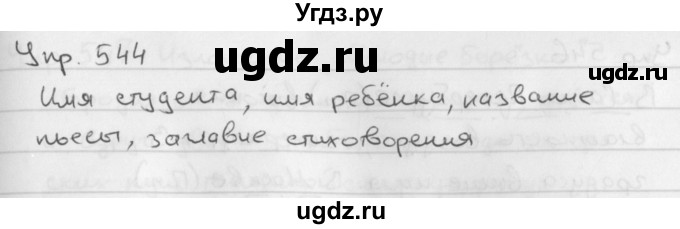 Угдз.ру
Упр. 544
ugdz.ru ugdz.ru
Имя студента, имя ребёнка, название
пьесы, заглавие стихотворения
ugdz.ru
ugdz.ru